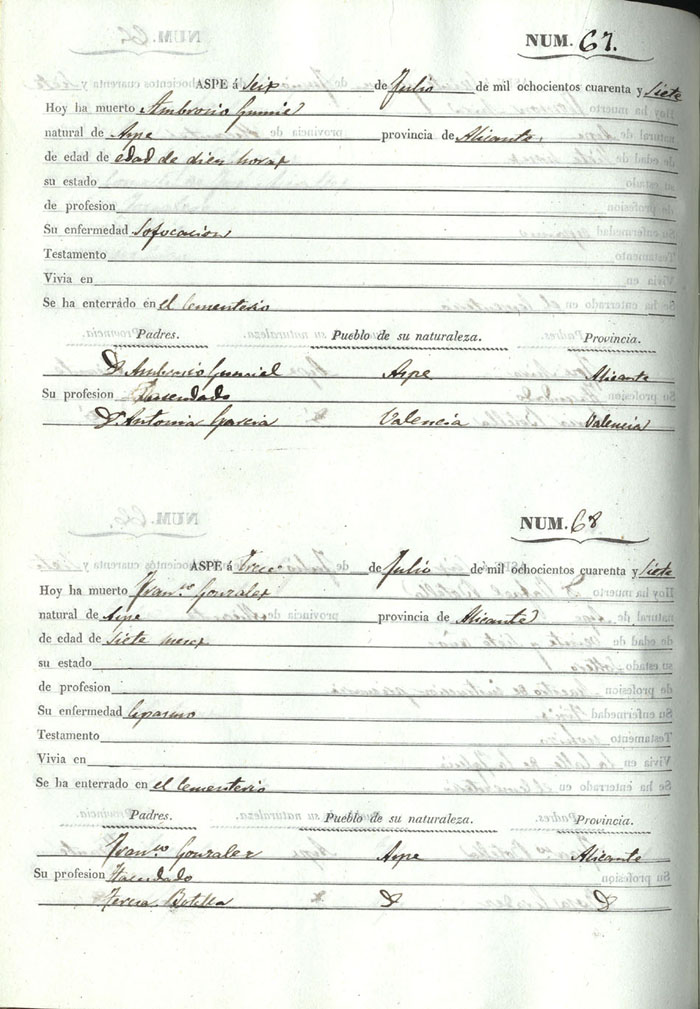 NUM. 67.
ASPE á Seis de Julio de mil ochocientos cuarenta y Siete
Hoy ha muerto Ambrosio
natural de Aspe provincia de Alicante.
de edad de edad de diez horas
su estado
de profesion
Su enfermedad Sofocacion
Testamento
Vivia en
Se ha enterrado en el Cementerio
Padres. Pueblo de su naturaleza. Provincia.
Dn. Ambrosio Aspe Alicante
Su profesion Hacendado
Da. Antonia Garcia Valencia Valencia
NUM. 68
ASPE á Trece de Julio de mil ochocientos cuarenta y Siete
Hoy ha muerto Franco. Gonzalez
natural de Aspe provincia de Alicante
de edad de Siete meses
su estado
de profesion
Su enfermedad Espasmo
Testamento
Vivia en
Se ha enterrado en el Cementerio
Padres. Pueblo de su naturaleza. Provincia.
Franco. Gonzalez Aspe Alicante
Su profesion Hacendado
Teresa Botella